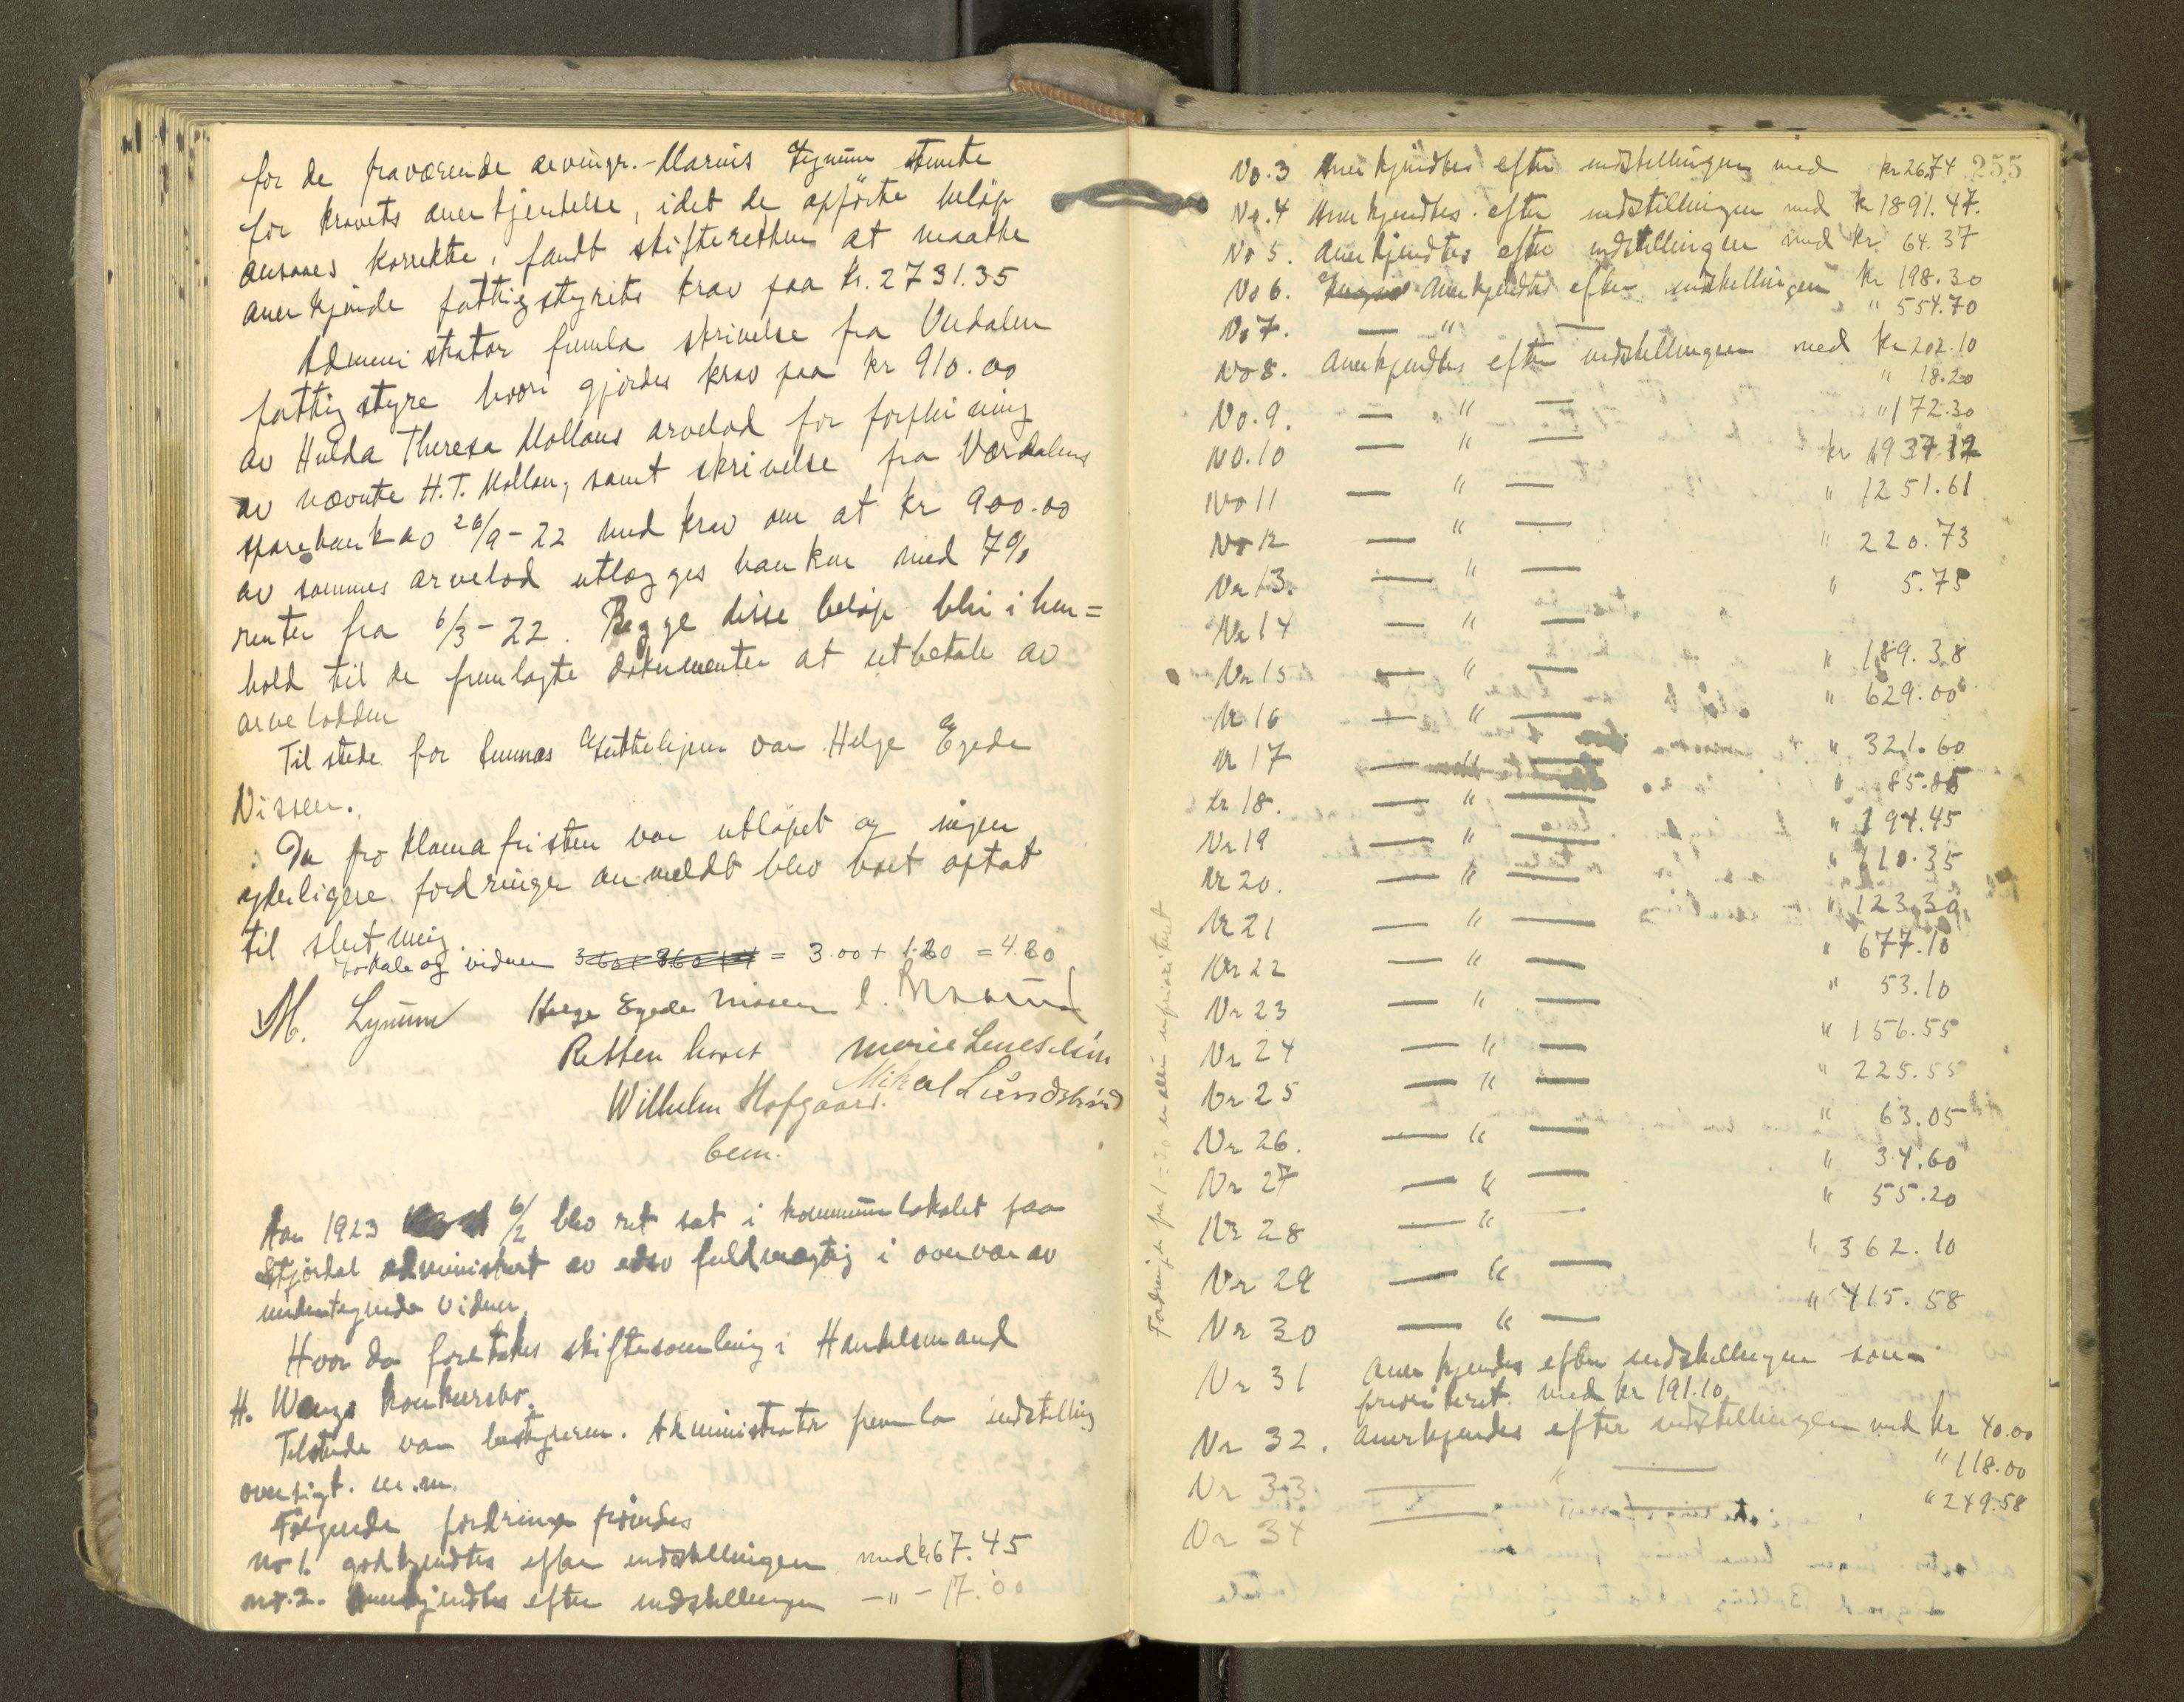 for de fraværende arvinger. - Marius Lynum stemte
for kravets anerkjendelse, idet de opførte beløp
ansaaes korrekte, fandt skifteretten at maatte
anerkjende fattigstyrets krav paa kr. 2731.35
Administrator fremla skrivelse fra Verdalen
fattigstyre hvori gjørdes krav paa kr 910.00
av Hulda Theresa Mollans arvelod for forpleining
av nævnte H.T. Mollan, samt skrivelse fra Værdalens
sparebank av 26/9-22 med krav om at kr 900.00
av sammes arvelod utlægges banken med 7%
renter fra 6/3-22. Begge disse beløp blir i hen=
hold til de fremlagte dokumenter at utbetale av
arvelodden
Tilstede for Gunnas var Helge Egede
Nissen.
Da proklamafristen var utløpet og ingen
yderligere fordringer anmeldt blev boet optat
til slutning.
Lokale og vidner = 3.00 + 1.80 = 4.80
M. Lynum Helge Egede Nissen
Retten hævet
Wilhelm Hofgaard. Mikal
bem.
Aar 1923 6/2 blev ret sat i kommunelokalet paa
Stjørdal administrert av edsv fuldmægtig i overvær av
undertegnede vidner.
Hvor da foretokes skiftesamling i Handelsmand
H. Wangs konkursbo.
Tilstede var bestyreren. Administrator fremla indstilling
oversigt. m.m.
Følgende fordringer prøvedes
No 1. godkjendtes efter indstillingen med kr 67.45
no. 2. Anerkjendtes efter indstillingen - " - 17.00
255
No. 3 Anerkjendtes efter indstillingen med kr 26.74
No. 4 Anerkjendtes efter indstillingen med kr 1891.47.
No 5. Anerkjendtes efter indstillingen med kr 64.37
No 6. Anerkjendtes efter indstillingen kr 198.30
No 7. — " — " 554.70
No 8. Anerkjendtes efter indstillingen med kr 202.10
No. 9. — " — " 18.20
No. 10 — " — " 172.30
No 11 — " — kr 1937.12
No 12 — " — " 1251.61
Nr 13. — " — " 220.73
Nr 14 — " — " 5.75
Nr 15 — " — " 189.38
Nr 16 — " — " 629.00
Nr 17 — " — " 321.60
Nr 18. — " — " 85.05
Nr 19 — " — " 194.45
Nr 20. — " — " 110.35
Nr 21 — " — " 123.30
Nr 22 — " — " 677.10
Nr 23 — " — " 53.10
Nr 24 — " — " 156.55
Nr 25 — " — " 225.55
Nr 26. — " — " 63.05
Nr 27 — " — " 34.60
Nr 28 — " — " 55.20
Nr 29 — " — " 362.10
Nr 30 — " — " 415.58
Nr 31 Anerkjendes efter indstillingen som
prioritert med kr 191.10
Nr 32. Anerkjendes efter indstillingen med kr 40.00
Nr 33. — " — " 118.00
Nr 34 — " — " 249.58
Fordringer fra 1-30 er alle uprioritert